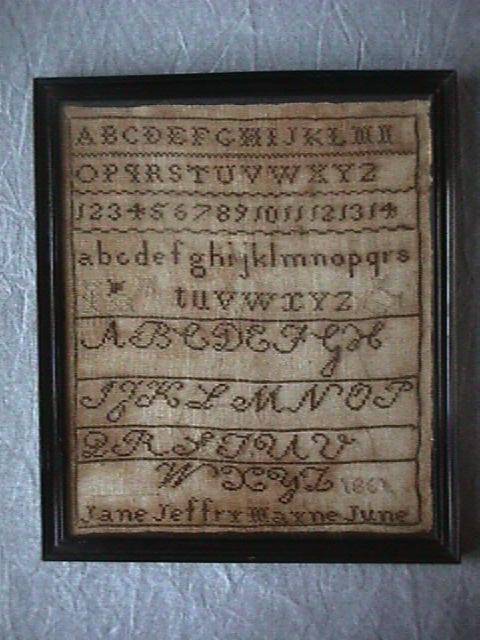 ABCDEFGHIJKLMN
OPQRSTUVWXYZ
1234567891011121314
abcdefghijklmnopqrs
tuvwxyz
ABCDEFGH
IJKLMNOP
QRSTUV
WXYZ 1861
Jane Jeffry Wayne June